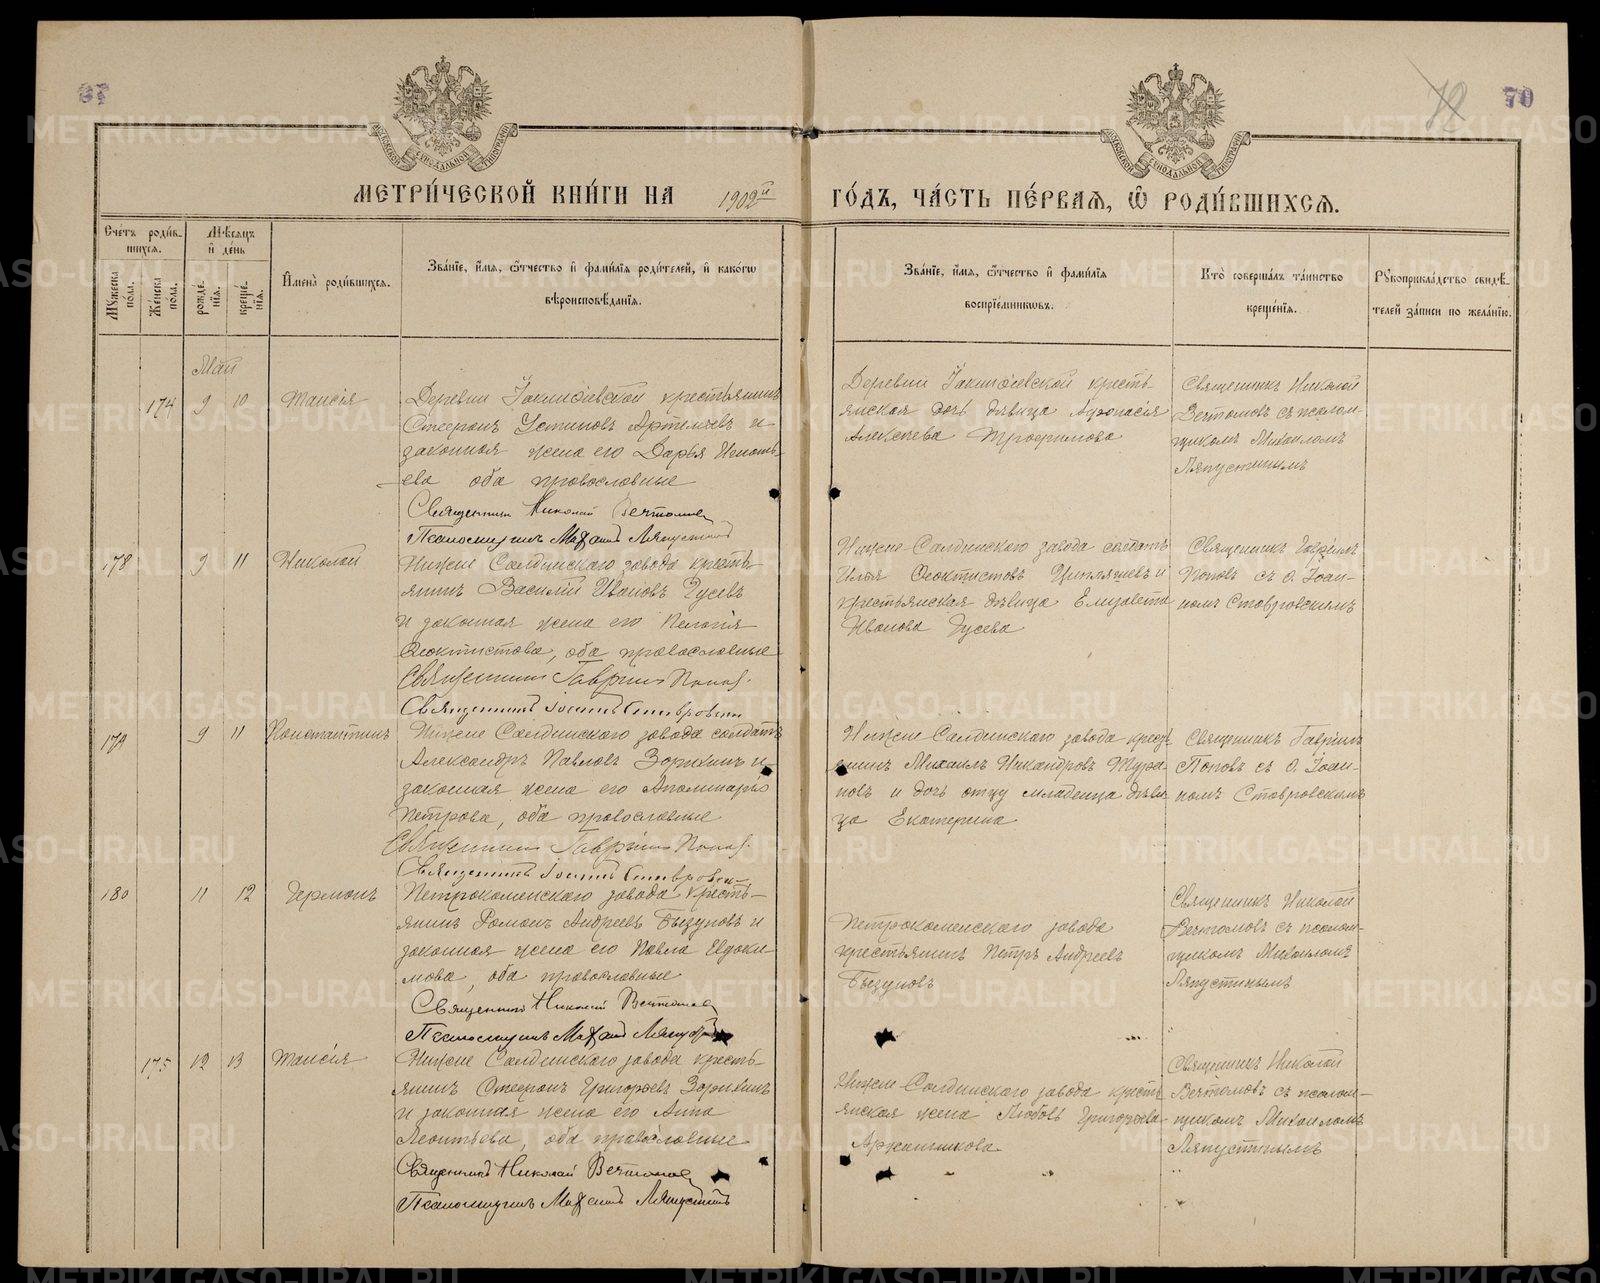 70
МЕТРИ́ЧЕСКОЙ КНИ́ГИ НА 1902й ГО́ДЪ, ЧА́СТЬ ПЕ́РВАЯ, Ѡ РОДИ́ВШИХСЯ.
Сче́тъ роди́в-
шихся.
Мꙋжеска пола.
Же́нска пола.
Мѣсяцъ
и де́нь
рожде́-
нія.
креще́-
нія.
Имена̀ роди́вшихся.
Зва́ніе, и́мя, ѻ́тчество и фами́лія роди́телей, и како́гѡ
вѣроисповѣ́данія.
Зва́ніе, и́мя, ѻ́тчество и фами́лія
воспріе́мникѡвъ.
Кто̀ соверша́лъ та́инство
креще́нія.
Рꙋкоприкла́дство свидѣ́-
телей за́писи по жела́нію.
Май
174 9 10 Таисія
Деревни Іакинѳіевской крестьянинъ
Стефанъ Устиновъ Артемьевъ и
законная жена его Дарья Игнать-
ева оба православные
Священникъ Николай Вечтомовъ
Псаломщикъ Михаилъ Ляпустинъ
Деревни Іакинѳіевской кресть-
янская дочь дѣвица Афанасія
Алексѣева Трофимова
Священникъ Николай
Вечтомовъ съ псалом-
щикомъ Михаиломъ
Ляпустинымъ
178 9 11 Николай
Нижне Салдинскаго завода кресть-
янинъ Василій Ивановъ Гусевъ
и законная жена его Пелагія
Ѳеоктистова, оба православные
Священникъ Гавріилъ Поповъ.
Священникъ Іоаннъ Ставровскій
Нижне-Салдинскаго завода солдатъ
Илья Ѳеоктистовъ Цыпляшевъ и
крестьянская дѣвица Елизавета
Иванова Гусева
Священникъ Гавріилъ
Поповъ съ о. Іоан-
номъ Ставровскимъ
179 9 11 Константинъ
Нижне Салдинскаго завода солдатъ
Александръ Павловъ Зорихинъ и
законная жена его Аполинарія
Петрова, оба православные
Священникъ Гавріилъ Поповъ.
Священникъ Іоаннъ Ставровскій
Нижне Салдинскаго завода кресть-
янинъ Михаилъ Никандровъ Тура-
новъ и дочь отцу младенца дѣви-
ца Екатерина
Священникъ Гавріилъ
Поповъ съ о. Іоан-
номъ Ставровскимъ
180 11 12 Германъ
Петрокаменскаго завода кресть-
янинъ Романъ Андреевъ Бызуновъ и
законная жена его Павла Евдоки-
мова, оба православные
Священникъ Николай Вечтомовъ
Псаломщикъ Михаилъ Ляпустинъ
Петрокаменскаго завода
крестьянинъ Петръ Андреевъ
Бызуновъ
Священникъ Николай
Вечтомовъ съ псалом-
щикомъ Михаиломъ
Ляпустинымъ
175 12 13 Таисія
Нижне Салдинскаго завода кресть-
янинъ Стефанъ Григорьевъ Зорихинъ
и законная жена его Анна
Леонтьева, оба православные
Священникъ Николай Вечтомовъ
Псаломщикъ Михаилъ Ляпустинъ
Нижне-Салдинскаго завода кресть-
янская жена Любовь Григорьева
Аржанникова.
Священникъ Николай
Вечтомовъ съ псалом-
щикомъ Михаиломъ
Ляпустинымъ
METRIKI.GASO-URAL.RU